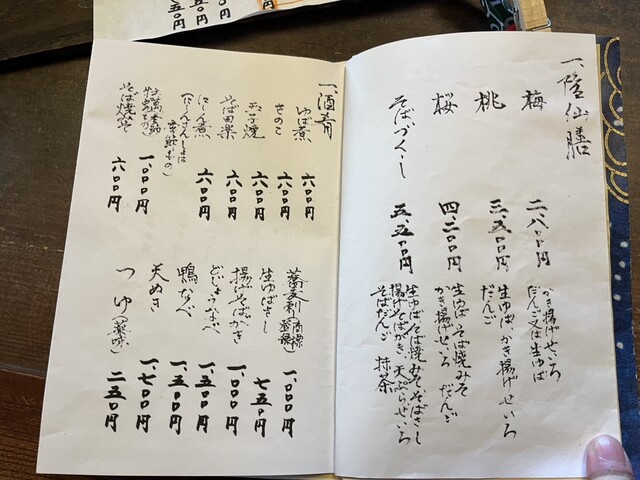 一、隆仙膳
梅 二、八〇〇円
かき揚げせいろ
だんご又は生ゆば
桃 三、五〇〇円
生ゆば、かき揚げせいろ
だんご
桜 四、二〇〇円
生ゆば そば焼みそ
かき揚げせいろ だんご
そばづくし 五、五〇〇円
生ゆば そば焼みそ そばさし
揚げそばがき、天ぷらせいろ
そばだんご 抹茶
一、酒肴
ゆば煮 六〇〇円
きのこ 六〇〇円
玉子焼 六〇〇円
そば田楽 六〇〇円
にしん煮 六〇〇円
一、〇〇〇円
そば焼みそ 六〇〇円
蕎麦刺(商標登録) 一、〇〇〇円
生ゆばさし 七五〇円
揚げそばがき 一、〇〇〇円
どじょうなべ 一、五〇〇円
鴨なべ 一、五〇〇円
天ぬき 一、七〇〇円
つゆ(薬味) 二五〇円